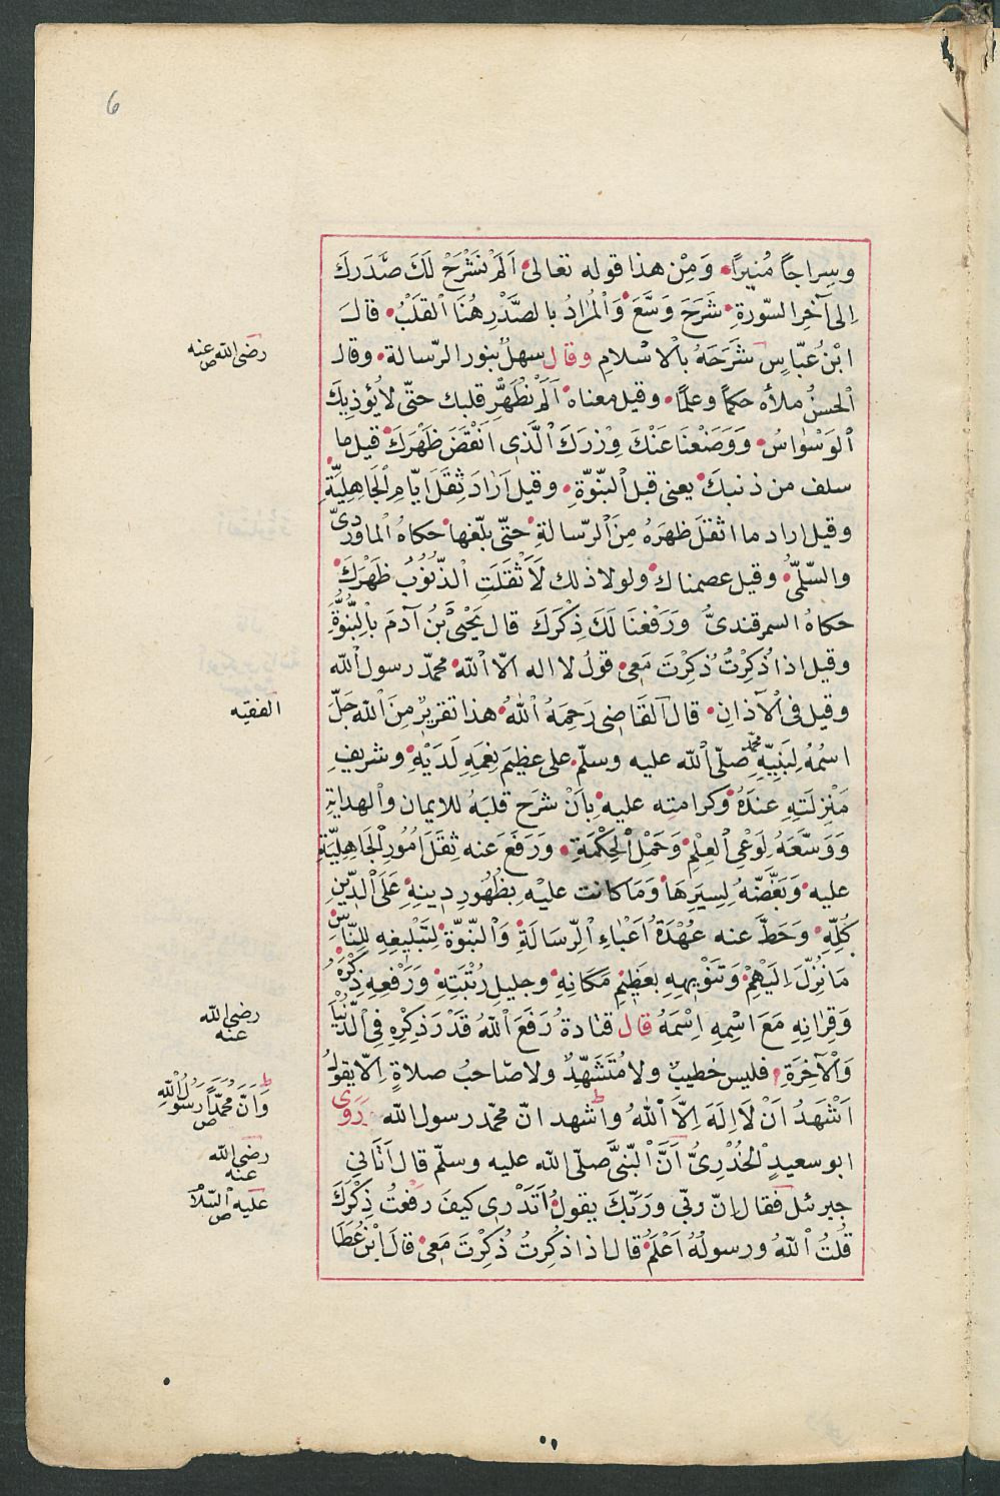 6
وسِراجاً مُنيراً وَمِنْ هذا قوله تعالى اَلَمْ نَشْرَحْ لَكَ صَدَرَكَ
اِلى آخِرِ السّورة شَرَحَ وَسَّعَ وَالْمُرادُ بالصَّدْرِ هُنَا الْقَلْبُ قالَ
ابْنُ عبّاسٍ شَرَحَهُ بالْاسْلامِ وقال سهلٌ بنور الرّسالة وقال
رضى الله عنه ص
الحسنُ ملأه حكمًا وعلمًا وقيل معناه اَلَمْ نُطَهِّرْ قلبك حتّى لا يُؤذيكَ
الْوَسْواسُ وَوَضَعْنَا عَنْكَ وِزْرَكَ الَّذِى اَنْقَضَ ظَهْرَكَ قيل ما
سلف من ذنبكَ يعنى قبل النبّوّةِ وقيل اَرَادَ ثِقَلَ ايّامِ الْجَاهِلِيّةِ
وقيل اراد ما اثقلَ ظهرَهُ مِنَ الرّسالةِ حتّى بلّغها حكاهُ الماوردىّ
والسّلمىُّ وقيل عصمناك ولولا ذلك لَاَثْقَلَتِ الذّنُوُبُ ظَهْرَكَ
حكاهُ السمرقندىُّ وَرَفَعْنَا لَكَ ذِكْرَكَ قال يَحْيَى بْنُ آدَمَ بِالنُّبُوَّةِ
وقيل اذا ذُكِرْتُ ذُكِرْتَ مَعِى قولُ لا اله الاّ الله محمّد رسول الله
وقيل فى الْآذانِ قال القَاضِى رَحِمَهُ اللهُ هذا تقريرٌ مِنَ الله جَلَّ
الفقيه
اسْمُهُ لِنَبِيِّهِ محمّد صلّى الله عليه وسلّم على عظيم نِعَمِهِ لَدَيْهِ وشريفِ
مَنْزِلَتِهِ عندَهُ وكرامته عليه بِاَنْ شرَح قلبَهُ للايمان والهدايةِ
وَوَسَّعَهُ لِوَعْىِ العِلْمِ وَحَمْلِ الْحِكْمَةِ وَرَفَعَ عنه ثِقَلَ اُمُورِ الْجَاهِلِيّةِ
عليه وَبَغَّضَهُ لِسِيَرِهَا وَمَا كانت عليْهِ بِظُهُورِ دينِهِ عَلَى الدّينِ
كُلِّهِ وَحَطَّ عنه عُهْدَةَ اَعْبَاءِ الرِّسَالَةِ وَالنّبّوّةِ لِتَبْلِيغِهِ لِلنّاسِ
مَا نُزِّلَ اِلَيْهِمْ وَتَنْوِيهِهِ بِعَظِيمِ مَكَانِهِ وجليلِ رُتْبَتِهِ وَرَفْعِهِ ذِكْرَهُ
وَقِرَانِهِ مَعَ اسْمِهِ اِسْمَهُ قال قتادةُ رَفَعَ اللهُ قَدْرَ ذِكْرِهِ فِى الدّنْيَا
رضى الله عنه
وَالْآخِرَةِ فليس خطيبٌ ولا مُتَشَهِّدٌ ولا صَاحبُ صلاةٍ الاّ يقولُ
اَشْهَدُ اَنْ لَا اِلَهَ اِلاَّ اللهُ واشهد انّ محمّد رسول الله رَوَى
وَاَنَّ محمّدًا رَسُولُ اللهِ ص
ابو سعيدٍ الْخُدْرِىُّ اَنَّ النّبىَّ صلّى الله عليه وسلّم قال اَتَانِى
رضى الله عنه
جبرئل فقال اِنّ ربّى وَرَبّكَ يقولُ اَتَدْرِى كيفَ رَفَعْتُ ذِكْرَكَ
عليه السّلا ص
قُلتُ اللهُ ورسولُهُ اَعْلَمُ قال اذا ذكِرتُ ذُكِرْتَ مَعِى قالَ ابْنُ عَطَا